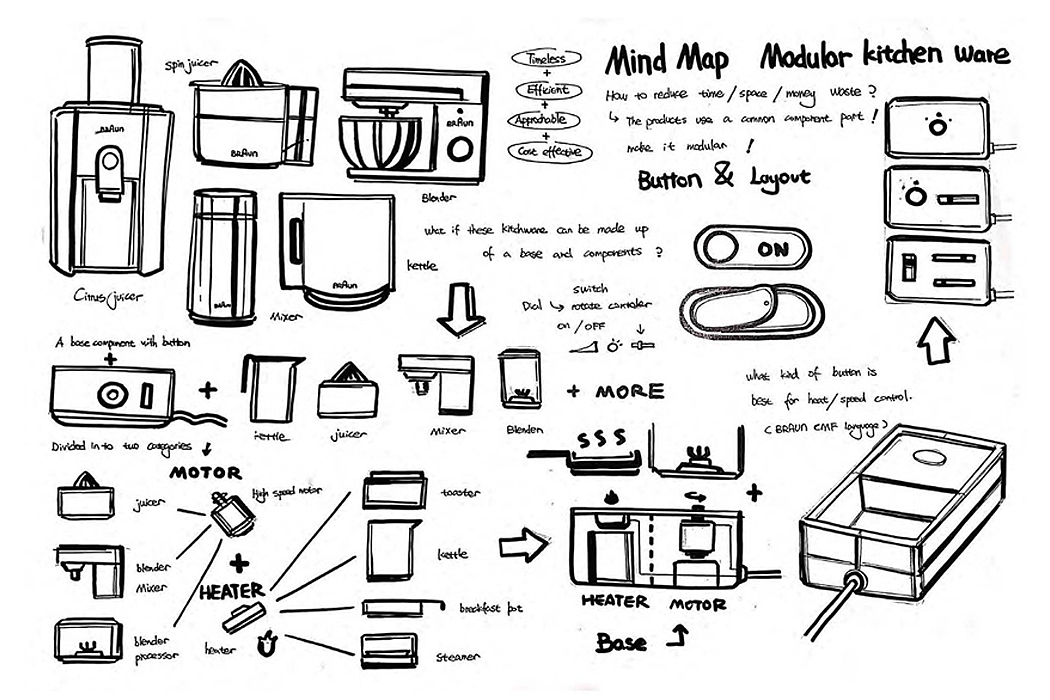 Mind Map Modular kitchen ware
How to reduce time / space / money waste ?
↳ The products use a common component part !
make it modular !
Button & Layout
Timeless
+
Efficient
+
Approchable
+
Cost effective
spin juicer
BRAUN
BRAUN
BRAUN
Blender
Citrus/juicer
BRAUN
Mixer
BRAUN
kettle
what if these kitchware can be made up
of a base and components ?
ON
switch
Dial ↳ rotate controler
on / OFF
A base component with button
+
+
kettle
juicer
Mixer
Blender
+ MORE
what kid of button is
best for heat/speed control.
( BRAUN EMF languge )
Divided in to two categories
MOTOR
High speed motor
juicer
blender
Mixer
blender
processor
+
HEATER
heater
toaster
kettle
breakfast pot
Steamer
SSS
+
HEATER MOTOR
Base